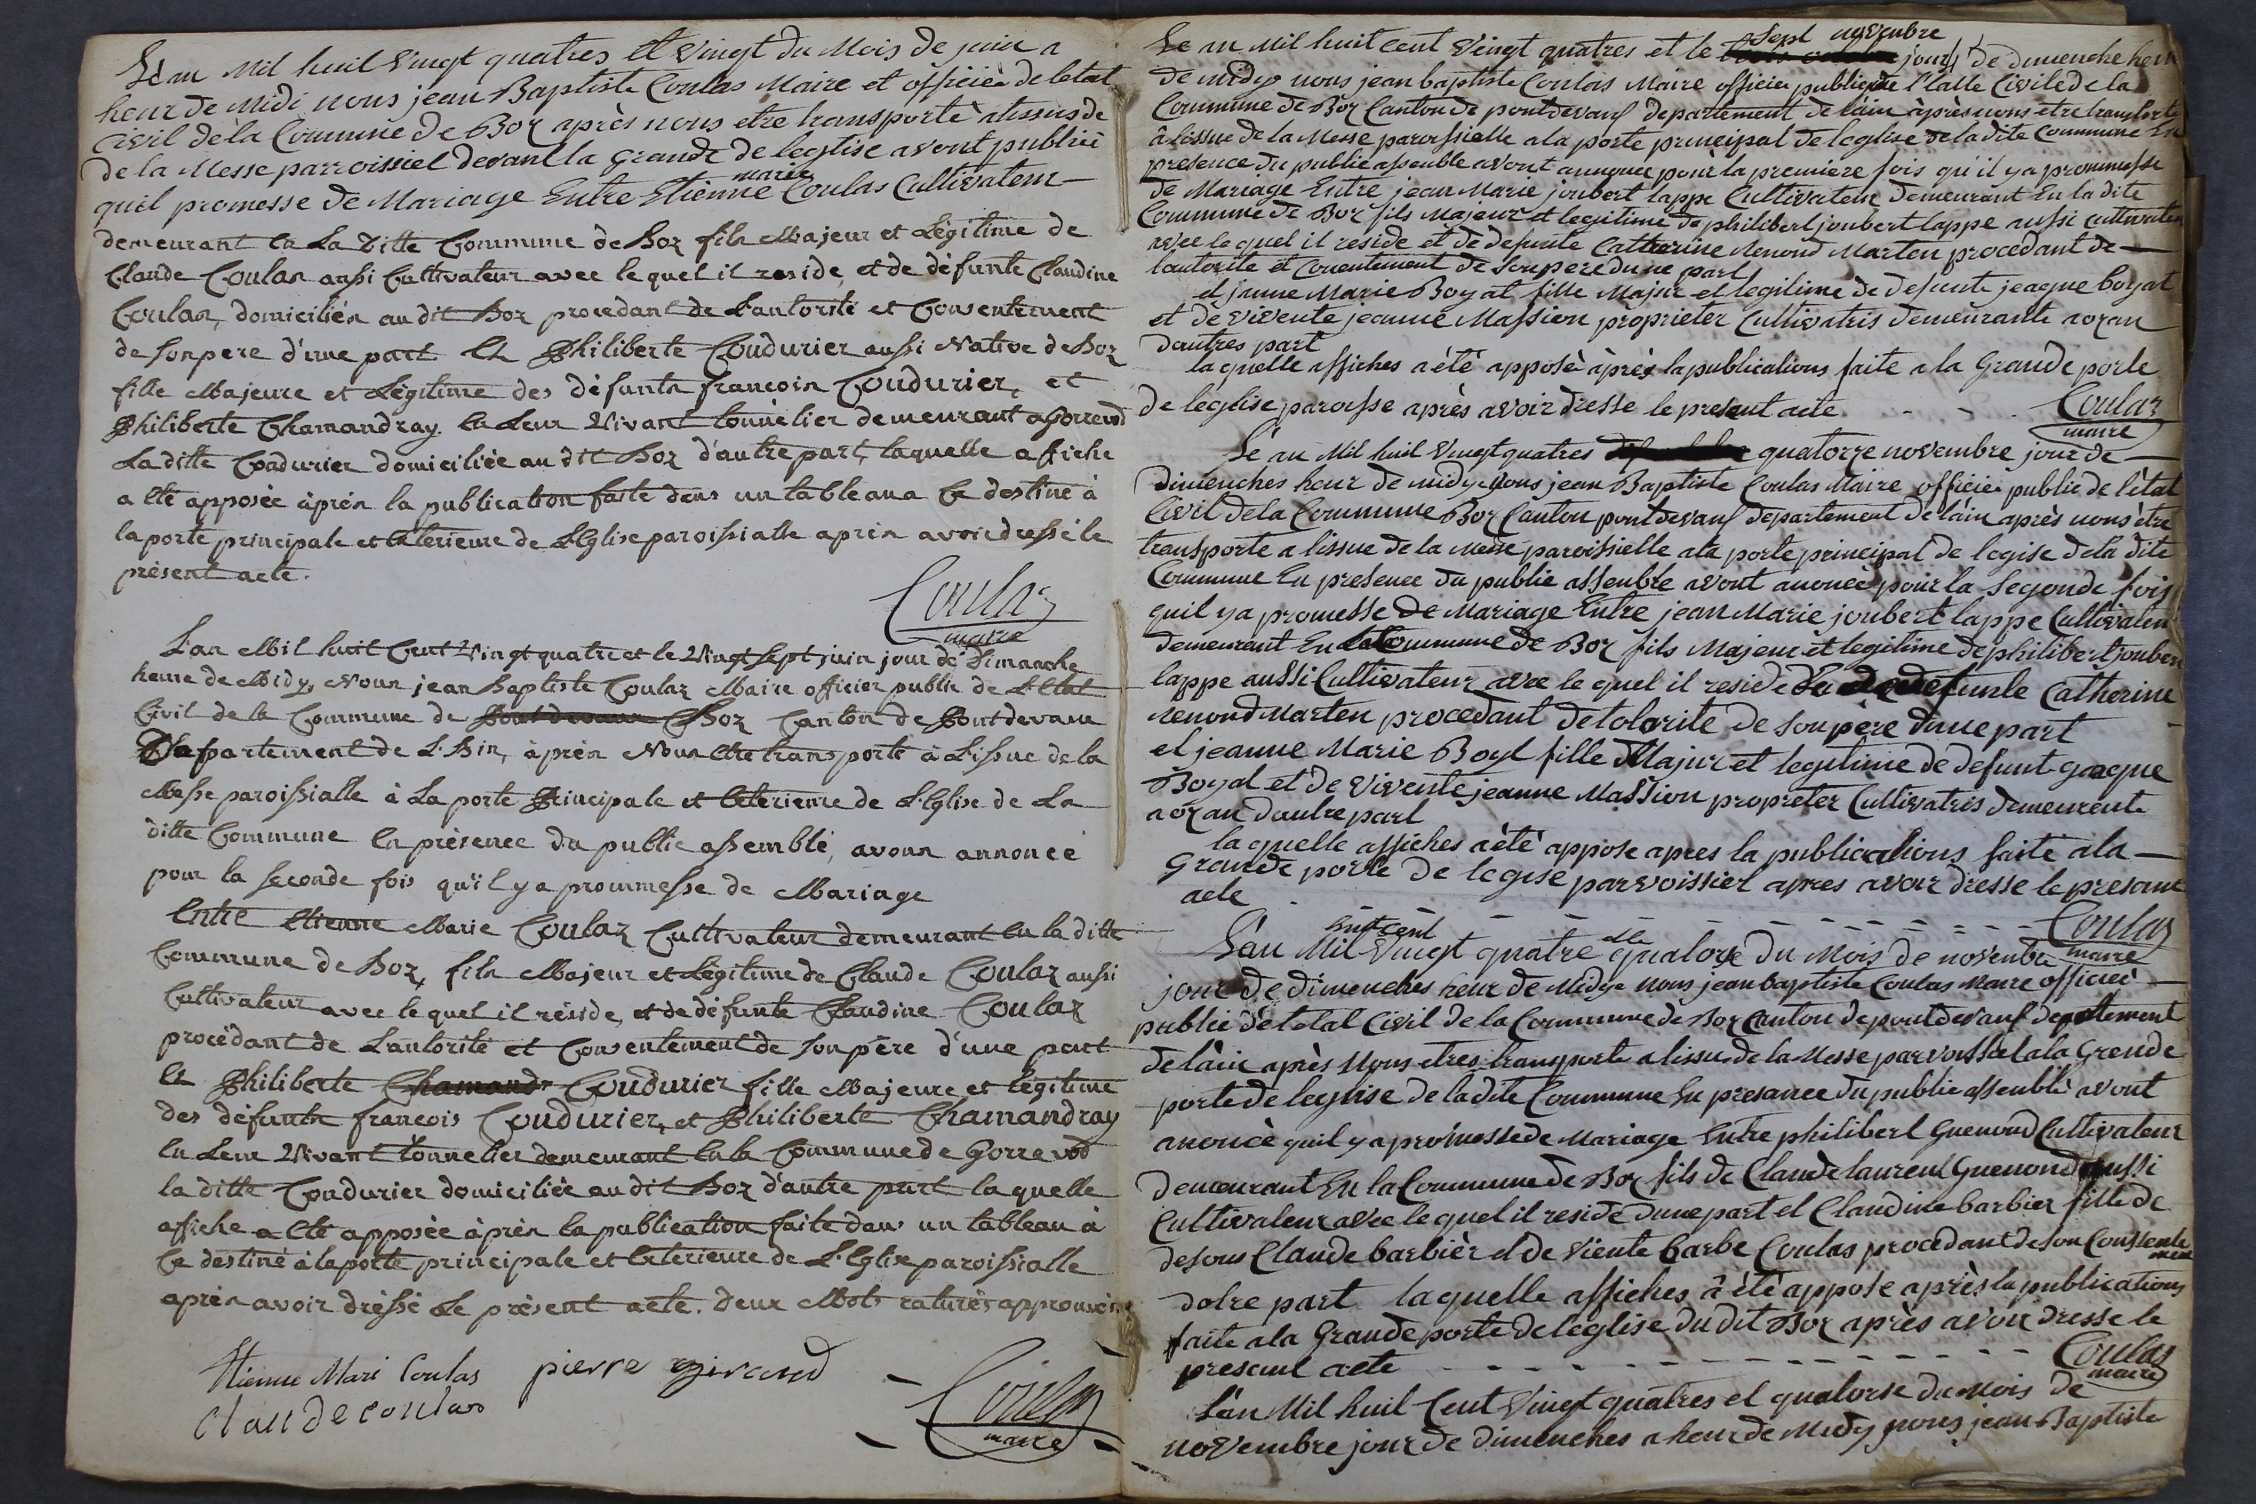 Léan Mil huil Vingt quatres et Vingt du Mois de juin a
heur de Midi nous jean Baptiste Coulas Maire et officiée de letat
Civil dela Commune de Boz après nous etre transporté alissus de
de la Messe parroissiel devant la Grande de leglise avont publiée
quil promesse de Mariage Entre Etienne marie Coulas Cultivateur
demeurant en La ditte Commune de Boz fils Majeur et Légitime de
Claude Coulas aussi Cultivateur avec lequel il reside, et de défunte Claudine
Coulas, domiciliés au dit Boz procedant de L'autorité et Consentement
de son pere d'une part Et Philiberte Coudurier aussi Native de Boz
fille Majeure et Légitime des défunts françois Coudurier, et
Philiberte Chamandray en Leur Vivant tonnelier demeurant a Gorrevod
La ditte Coudurier domiciliée au dit Boz d'autre part, laquelle affiche
a été apposée àprés la publication faite dans un tableau a Ce destiné à
la porte principale et Exterieure de L'Eglise paroissialle aprés avoir dressé le
présent acte.
Coulas
maire
L'an Mil huit Cent Vingt quatre et le Vingt sept juin jour de Dimanche
heure de Midy, Nous jean Baptiste Coulaz Maire officier public de L'Etat
Civil de la Commune de Pont devaux Boz Canton de Pontdevaux
Departement de L'Ain, àprés Nous être transporté à L'issue de la
Messe paroissialle à La porte Principale et Exterieure de L'Eglise de La
ditte Commune En présence du public assemblé, avons annoncé
pour la seconde fois qu'il y a prommesse de Mariage
Entre Etienne Marie Coulaz Cultivateur demeurant En la ditte
Commune de Boz, fils Majeur et Légitime de Claude Coulaz aussi
Cultivateur avec lequel il réside, et de défunte Claudine Coulaz
procédant de L'autorité et Consentement de son père d'une part
Et Philiberte Chamand Coudurier fille Majeure et légitime
des défunts françois Coudurier, et Philiberte Chamandray
En Leur Vivant tonnelier demeurant En la Commune de Gorrevod
la ditte Coudurier domiciliée au dit Boz d'autre part laquelle
affiche a été apposée àprés la publication faite dans un tableau à
Ce destiné à la porte principale et Exterieure de L'Eglise paroissialle
après avoir dréssé Le présent acte. deux Mots raturés approuvés
Etienne Mari Coulas pierre girard
Claude coulas
Coulas
maire
Le an Mil huit Cent Vingt quatres et le sept novembre jours de dimenche heur
de midy nous jean baptiste Coulas Maire officier publique de l'Etat Civile de la
Commune de Boz Canton de pontdevaux departement de lain àprès nous etre transporte
à lissue de la Messe paroissielle a la porte principal de leglise de la dite Commune En
presence du public assenble avont annoncé pour la premiere fois qu'il y a prommesse
de Mariage Entre jean Marie joubert lappe Cultivateur demeurant En la dite
Commune de Boz fils Majeur et legitime de philibert joubert lappe aussi cultivateur
avec lequel il reside et de defunte Catherine Renoud Marten procedant de
lautorite et Consentement de son pere dune part
et jeanne Marie Boyat fille Majur et legitime de defunt jeaque boyat
et de vivente jeanne Massion proprieter Cultivatris demeurante a ozan
dautres part
laquelle affiches a été apposè àprès la publications faite a la Grande porte
de leglise paroisse après avoir dresse le present acte
Coulaz
maire
Lé an Mil huil Vingt quatres quatorze novembre jour de
dimenches heur de midy nous jean Baptiste Coulas Maire officier public de l'état
Civil dela Commune Boz Canton pontdevaux departement de lain après nous être
transporte a lissue de la Messe paroissielle a la porte principal de legise de la dite
Commune En presence du public assenble avont anoncé pour la segonde fois
quil y a promesse de Mariage Entre jean Marie joubert lappe Cultivateur
demeurant En la Commune de Boz fils Majeur et legitime de philibert joubert
lappe aussi Cultivateur avec lequel il reside defunte Catherine
Renoud Marten procedant de lotorite de son père dune part
et jeanne Marie Boyt fille Majur et legitime de defunt geaque
Boyat et de Vivente jeanne Massion propreter Cultivatris demeurente
a ozan dautre part
laquelle affiches a été appose apres la publications faite a la
Grande porte de legise parvoissiel apres avoir dresse le presant
acte
Coulaz
maire
Lan Mil huit cent Vingt quatre et le quatorze du Mois de novembre
jour de dimenches heur de Midye nous jean baptiste Coulas Maire officieé
public de letat Civil de la Commune de Boz Canton de pontdevaux depatement
de làin après Nous etres transporte a lissu de la Messe parvoissiel a la Grende
porte de leglise de la dite Commune En presance du public assenblè avont
anoncè quil y a promesse de Mariage Entre philibert Guenoud Cultivateur
demeurant En la Commune de Boz fils de Claude laurent Guenoud aussi
Cultivateur avec lequel il reside dune part et Claudine barbier fille de
defous Claude barbièr et de Viente barbe Coulas procedant de son Consentement
dotre part laquelle affiches â été appose après la publications
faite a la Grande porte de leglise du dit Boz après avoir dresse le
presant acte
Coulas
maire
Lan Mil huil Cent Vingt quatres et quatorse du Mois de
novembre jour de dimenches a heur de Midy nous jean Baptiste